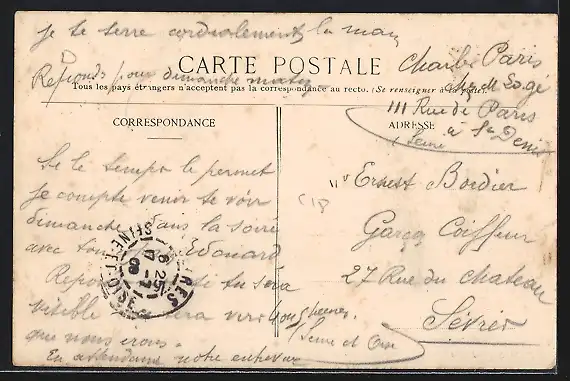 je te serre cordialement la main
CARTE POSTALE
Reponds pour dimanche matin
Tous les pays étrangers n'acceptent pas la correspondance au recto. (Se renseigner à la poste.)
Charles Paris
chez M
111 Rue de Paris
à St Denis
Seine
CORRESPONDANCE
ADRESSE
Si le temps le permet
je compte venir te voir
dimanche dans la soirée
avec ton Edouard
si tu sera
visible sera vers 4 ou 5 heures
que nous irons.
En attendant notre entrevue
Ernest Bordier
Garçon Coiffeur
27 Rue du Chateau
Sèvres
Seine et Oise
SEINE-ET-OISE